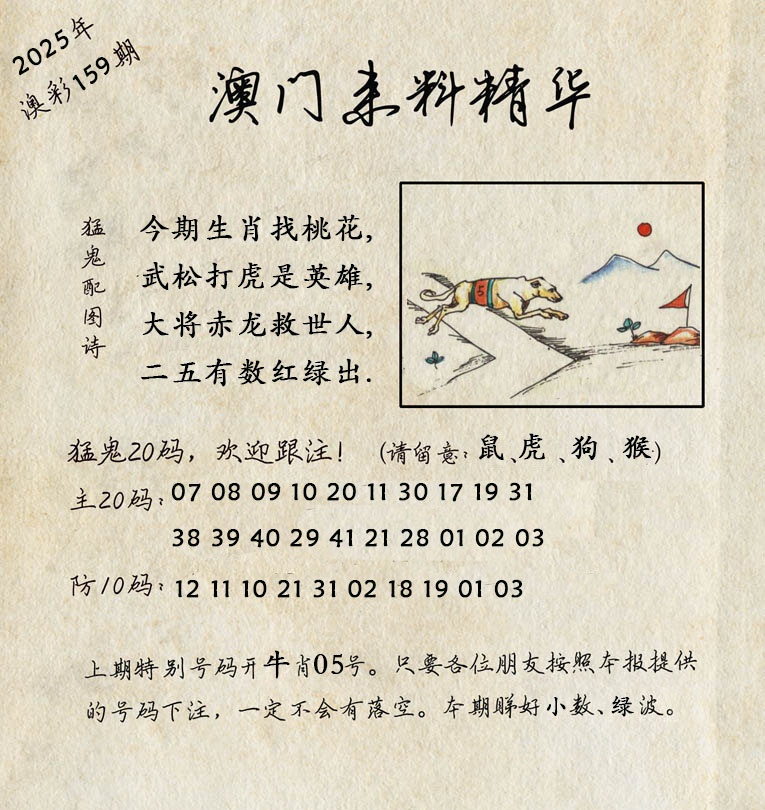 2025年
澳彩159期
澳门来料精华
猛鬼配图诗
今期生肖找桃花,
武松打虎是英雄,
大将赤龙救世人,
二五有数红绿出.
5
猛鬼20码，欢迎跟注！（请留意：鼠、虎、狗、猴）
主20码：07 08 09 10 20 11 30 17 19 31
38 39 40 29 41 21 28 01 02 03
防10码：12 11 10 21 31 02 18 19 01 03
上期特别号码开牛肖05号。只要各位朋友按照本报提供
的号码下注，一定不会有落空。本期睇好小数、绿波。